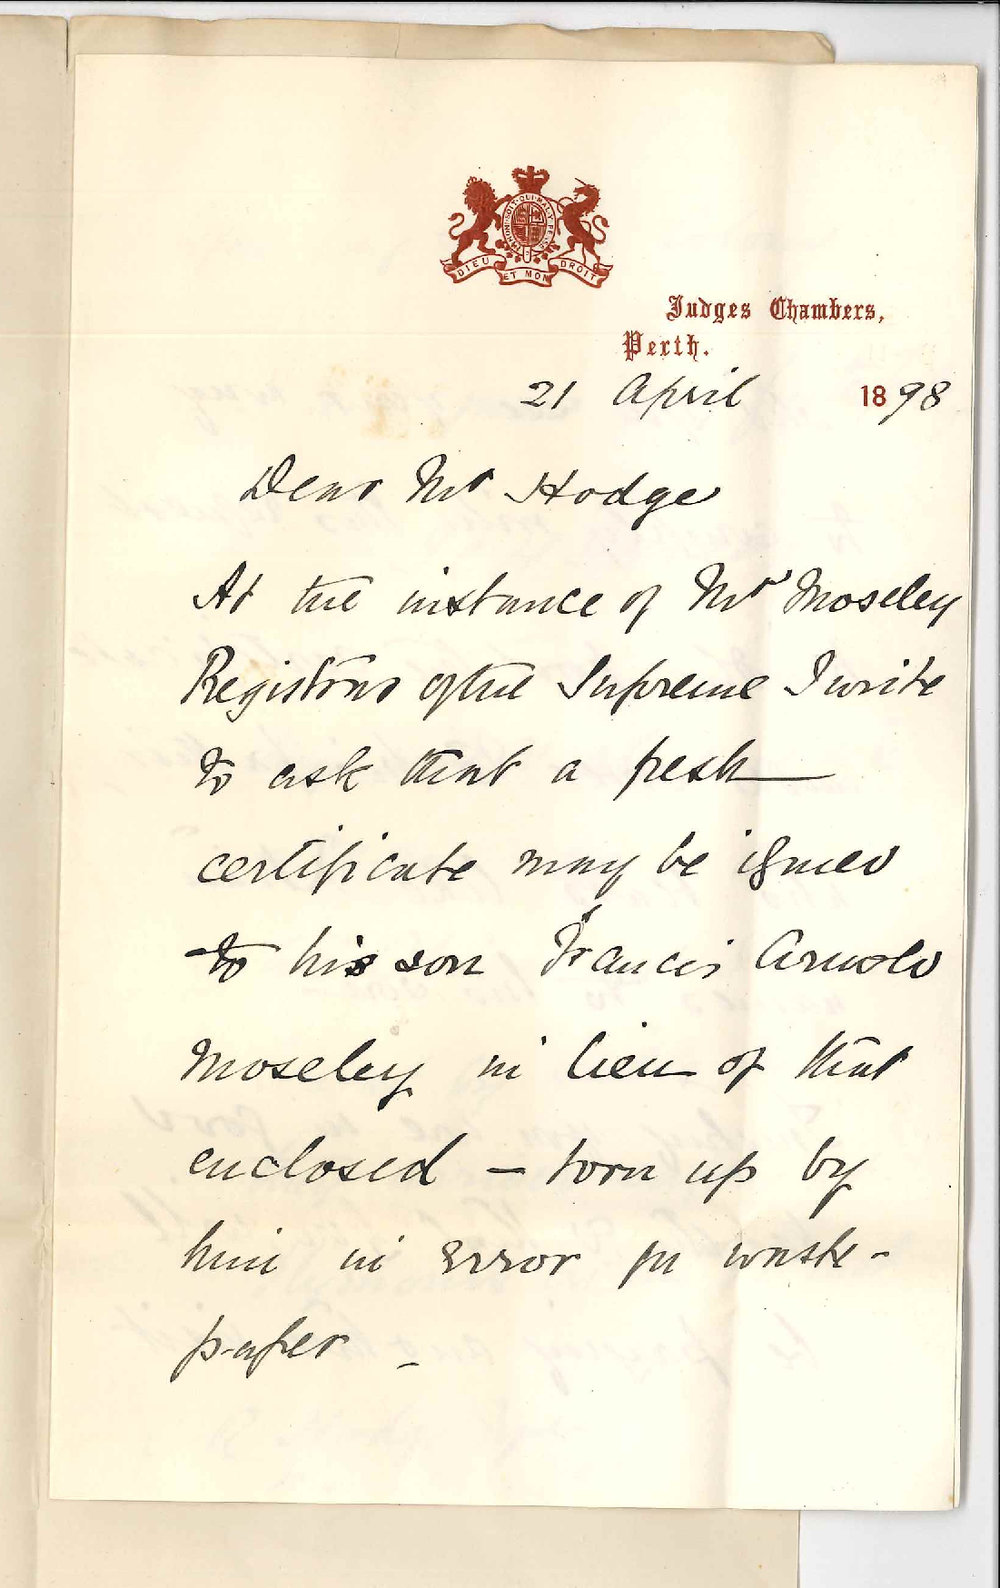 HONI·SOIT·QUI·MAL·Y·PENSE
DIEU ET MON DROIT
Judges Chambers,
Perth.
21 April 1898
Dear Mr Hodge
At the instance of Mr Moseley
Registrar of the Supreme I write
to ask that a fresh
certificate may be issued
to his son Francis Arnold
Moseley in lieu of that
enclosed – torn up by
him in error for waste-
paper –